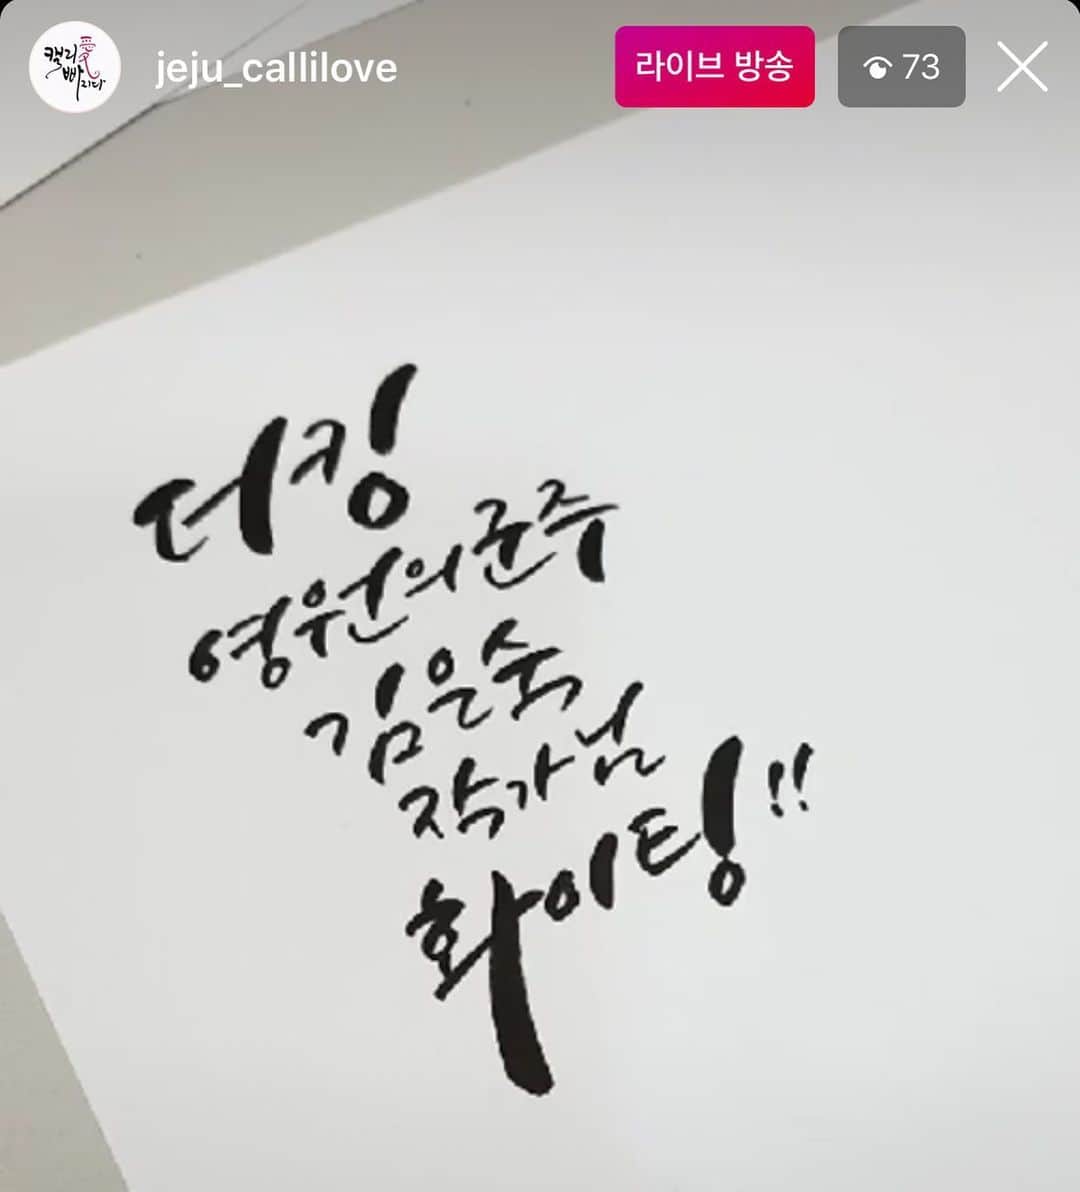 캘리愛
빠지다
jeju_callilove
라이브 방송
73
더킹
영원의군주
김은숙
작가님
화이팅!!